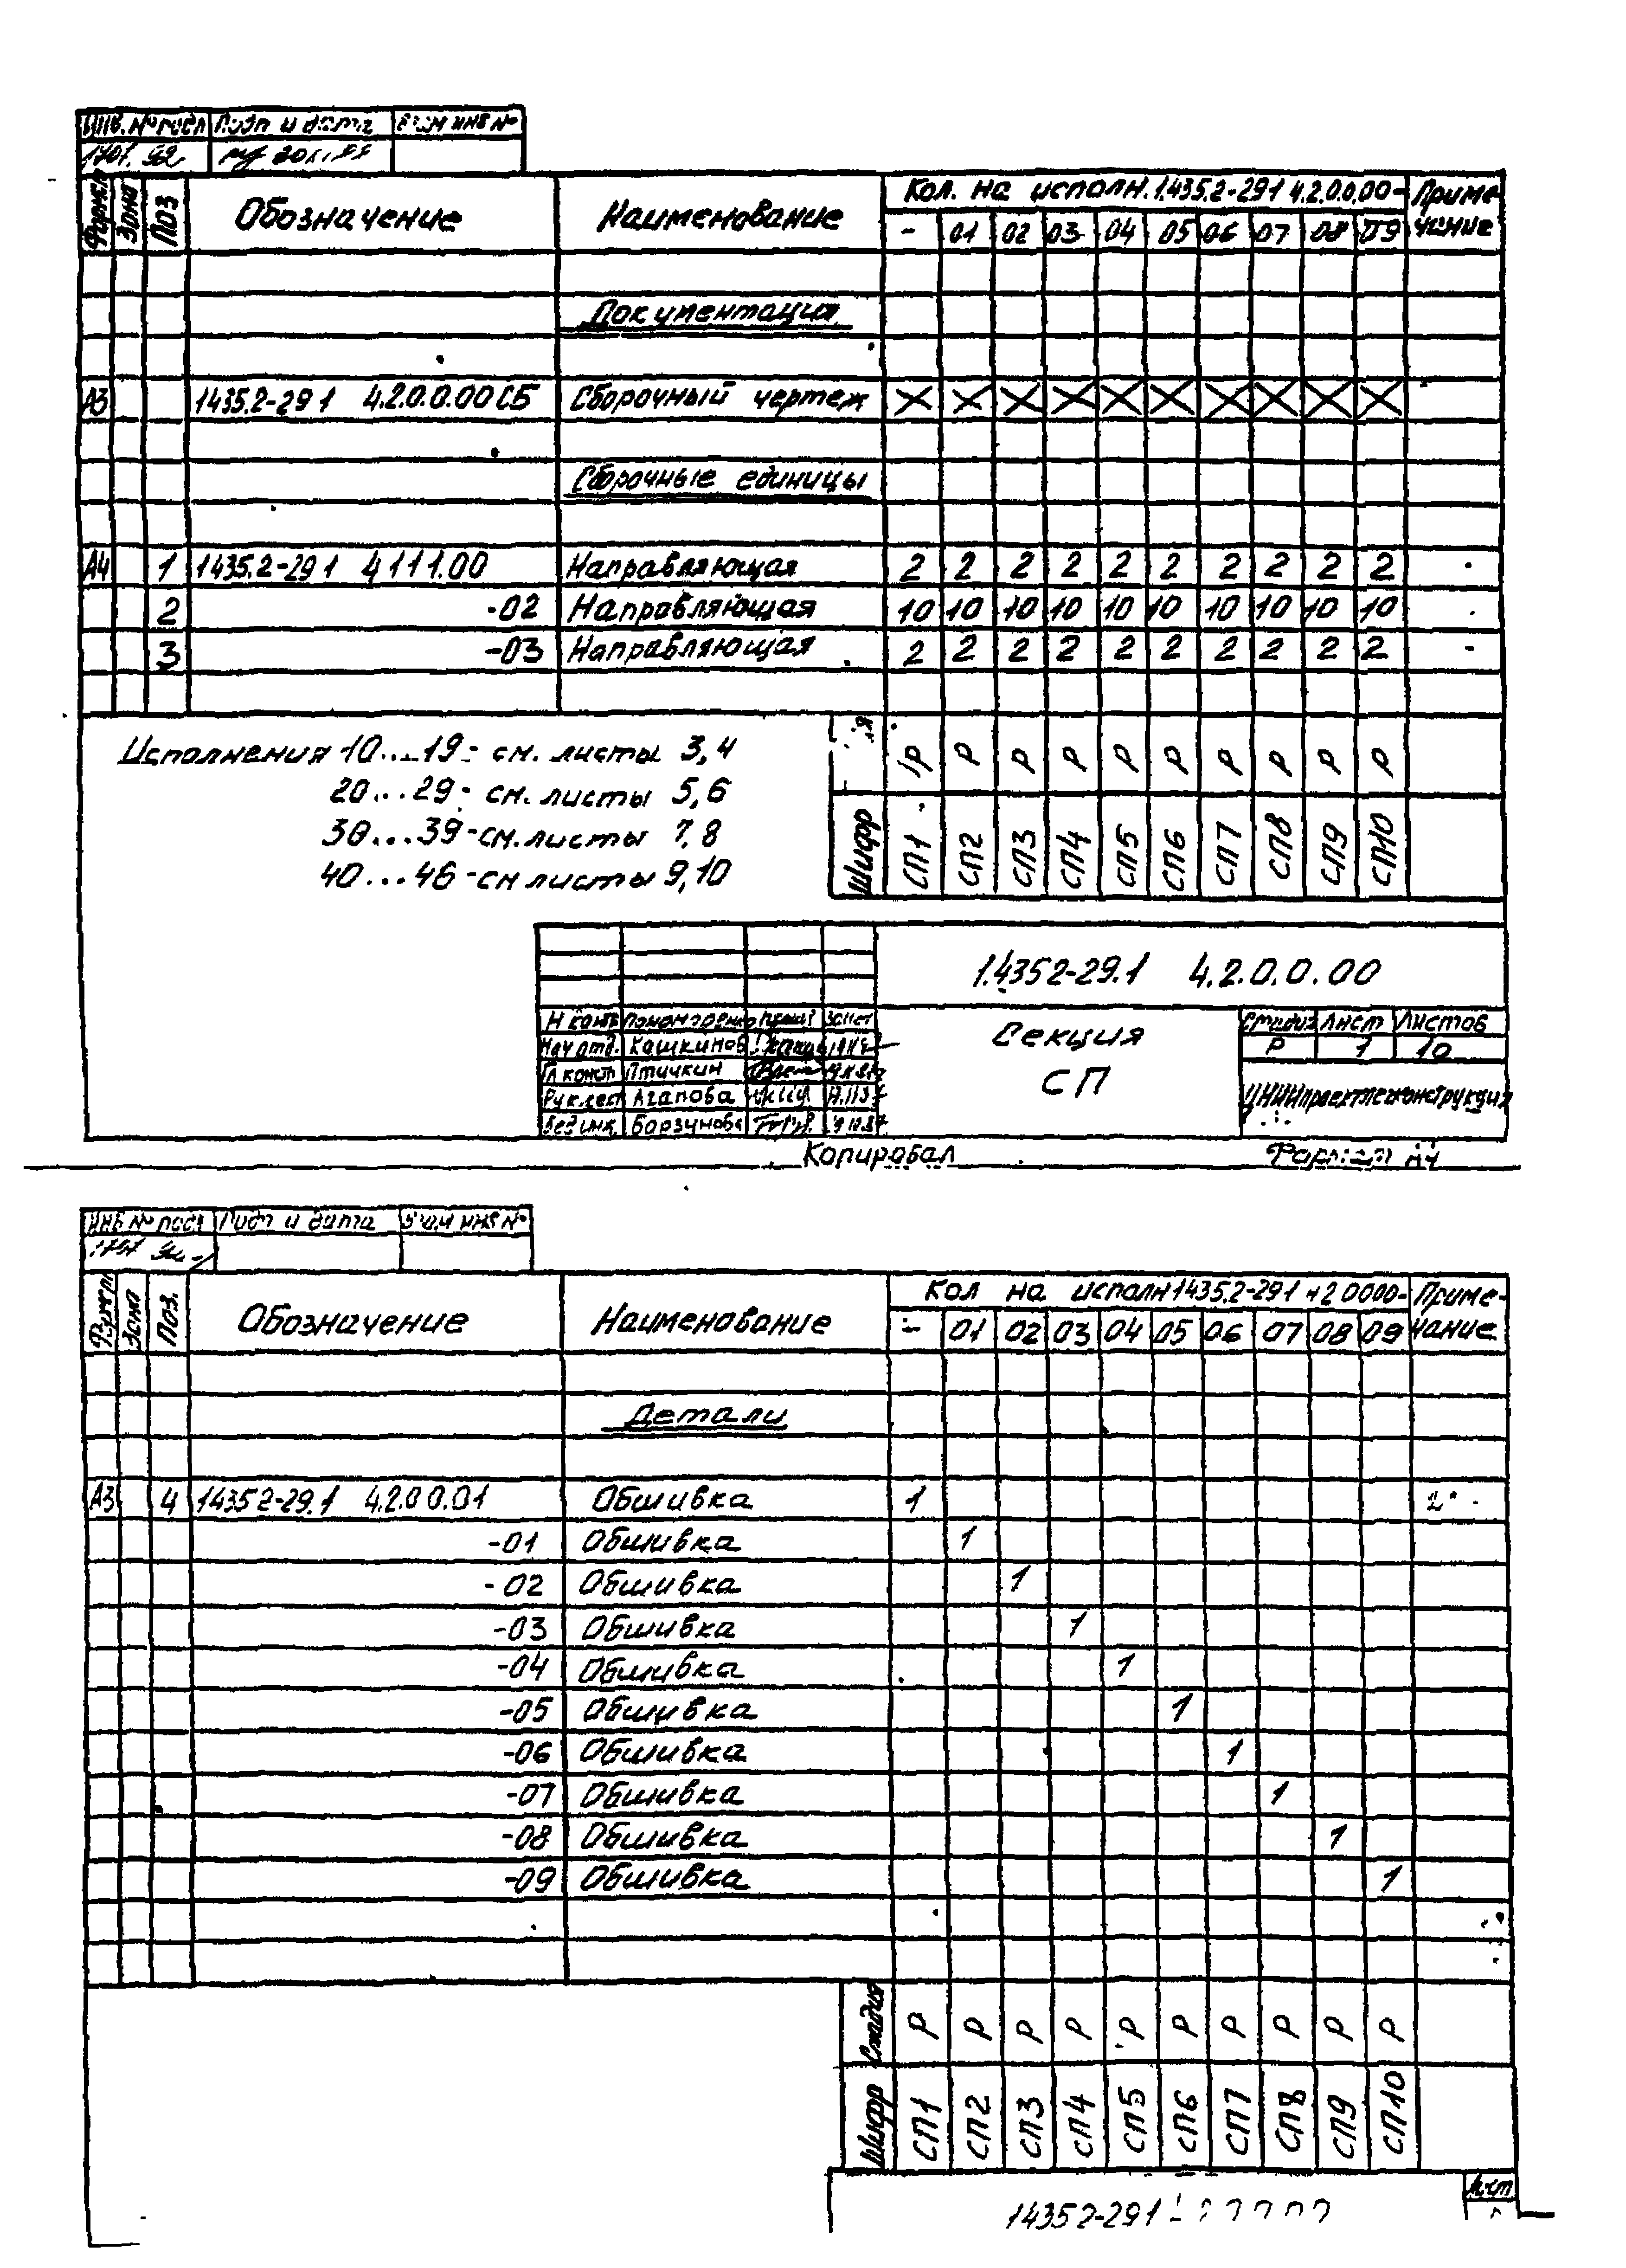 Инв. № подл Подп и дата Взам инв №
Формат Зона Поз Обозначение Наименование Кол. на исполн. 1.435.2-29.1 4.2.0.0.00- Примечание
- 01 02 03 04 05 06 07 08 09
Документация
А3 1435.2-29 1 4.2.0.0.00 СБ Сборочный чертеж X X X X X X X X X X
Сборочные единицы
А4 1 1435.2-29 1 4 1 1 1.00 Направляющая 2 2 2 2 2 2 2 2 2 2
2 -02 Направляющая 10 10 10 10 10 10 10 10 10 10
3 -03 Направляющая 2 2 2 2 2 2 2 2 2 2
Исполнения 10...19- см. листы 3,4
20...29- см. листы 5,6
30...39-см. листы 7,8
40...46-см листы 9,10
Р Р Р Р Р Р Р Р Р Р
Шифр СП1 СП2 СП3 СП4 СП5 СП6 СП7 СП8 СП9 СП10
1.435 2-29.1 4.2.0.0.00
Н конт Пономаренко
Нач отд. Кашкинов
Гл констр Птичкин
Рук.сект Агапова
Вед инж. Борзунова
Секция
СП
Стадия Лист Листов
Р 1 10
ЦНИИпроектлегконструкция
Копировал Формат А4
Инв № подл Подп и дата Взам инв №
Формат Зона Поз. Обозначение Наименование Кол на исполн 1435.2-29 1 4 2 0 0 00- Примечание
- 01 02 03 04 05 06 07 08 09
Детали
А3 4 1435 2-29.1 4.2.0 0.01 Обшивка 1
-01 Обшивка 1
-02 Обшивка 1
-03 Обшивка 1
-04 Обшивка 1
-05 Обшивка 1
-06 Обшивка 1
-07 Обшивка 1
-08 Обшивка 1
-09 Обшивка 1
Стадия Р Р Р Р Р Р Р Р Р Р
Шифр СП1 СП2 СП3 СП4 СП5 СП6 СП7 СП8 СП9 СП10
1435 2-29 1
Лист